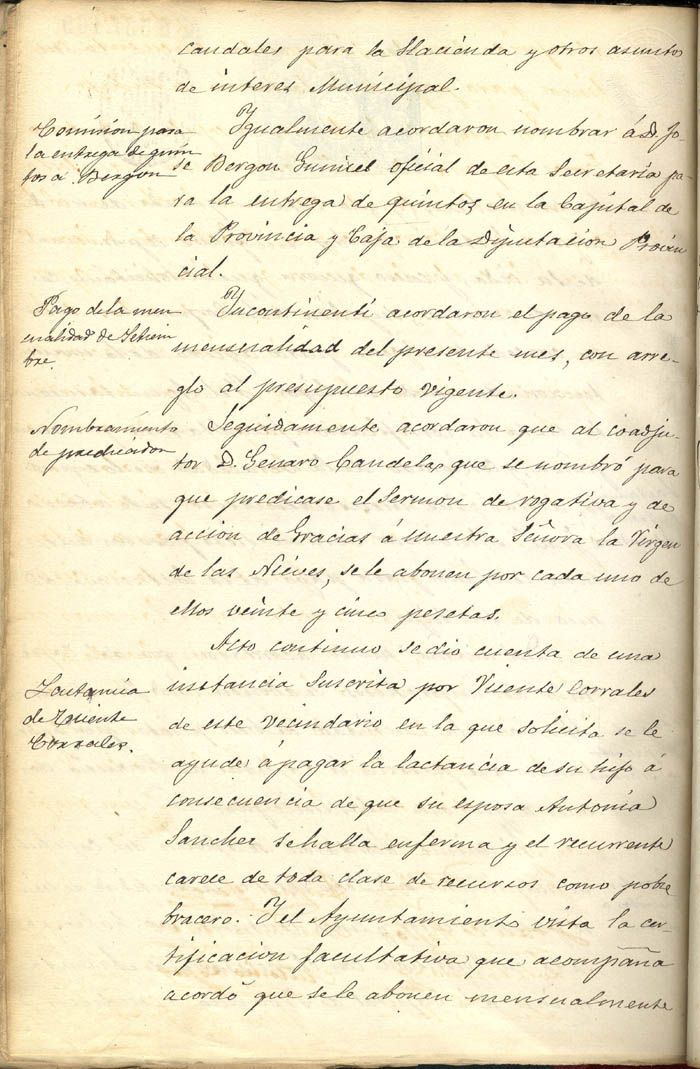 caudales para la Hacienda y otros asunto
de interes Municipal.
Comision para
la entrega de quin
tos a Bergon
Igualmente acordaron nombrar á D. Jo-
se Bergon oficial de esta Secretaría pa-
ra la entrega de quintos, en la Capital de
la Provincia y Caja de la Diputacion Provin
cial.
Pago de la men
sualidad de Setiem
bre.
Incontinenti acordaron el pago de la
mensualidad del presente mes, con arre-
glo al presupuesto vigente.
Nombramiento
de predicador
Seguidamente acordaron que al coadju-
tor D. Genaro Candela, que se nombró para
que predicase el Sermon de rogativa y de
accion de Gracias á Nuestra Señora la Virgen
de las Nieves, se le abonen por cada uno de
ellos veinte y cinco pesetas.
Lactancia
de Vicente
Corrales.
Acto continuo se dio cuenta de una
instancia suscrita por Vicente Corrales
de este vecindario en la que solicita se le
ayude á pagar la lactancia de su hijo á
consecuencia de que su esposa Antonia
Sanchez se halla enferma y el recurrente
carece de toda clase de recursos como pobre
bracero. Y el Ayuntamiento vista la cer-
tificacion facultativa que acompaña
acordó que se le abonen mensualmente